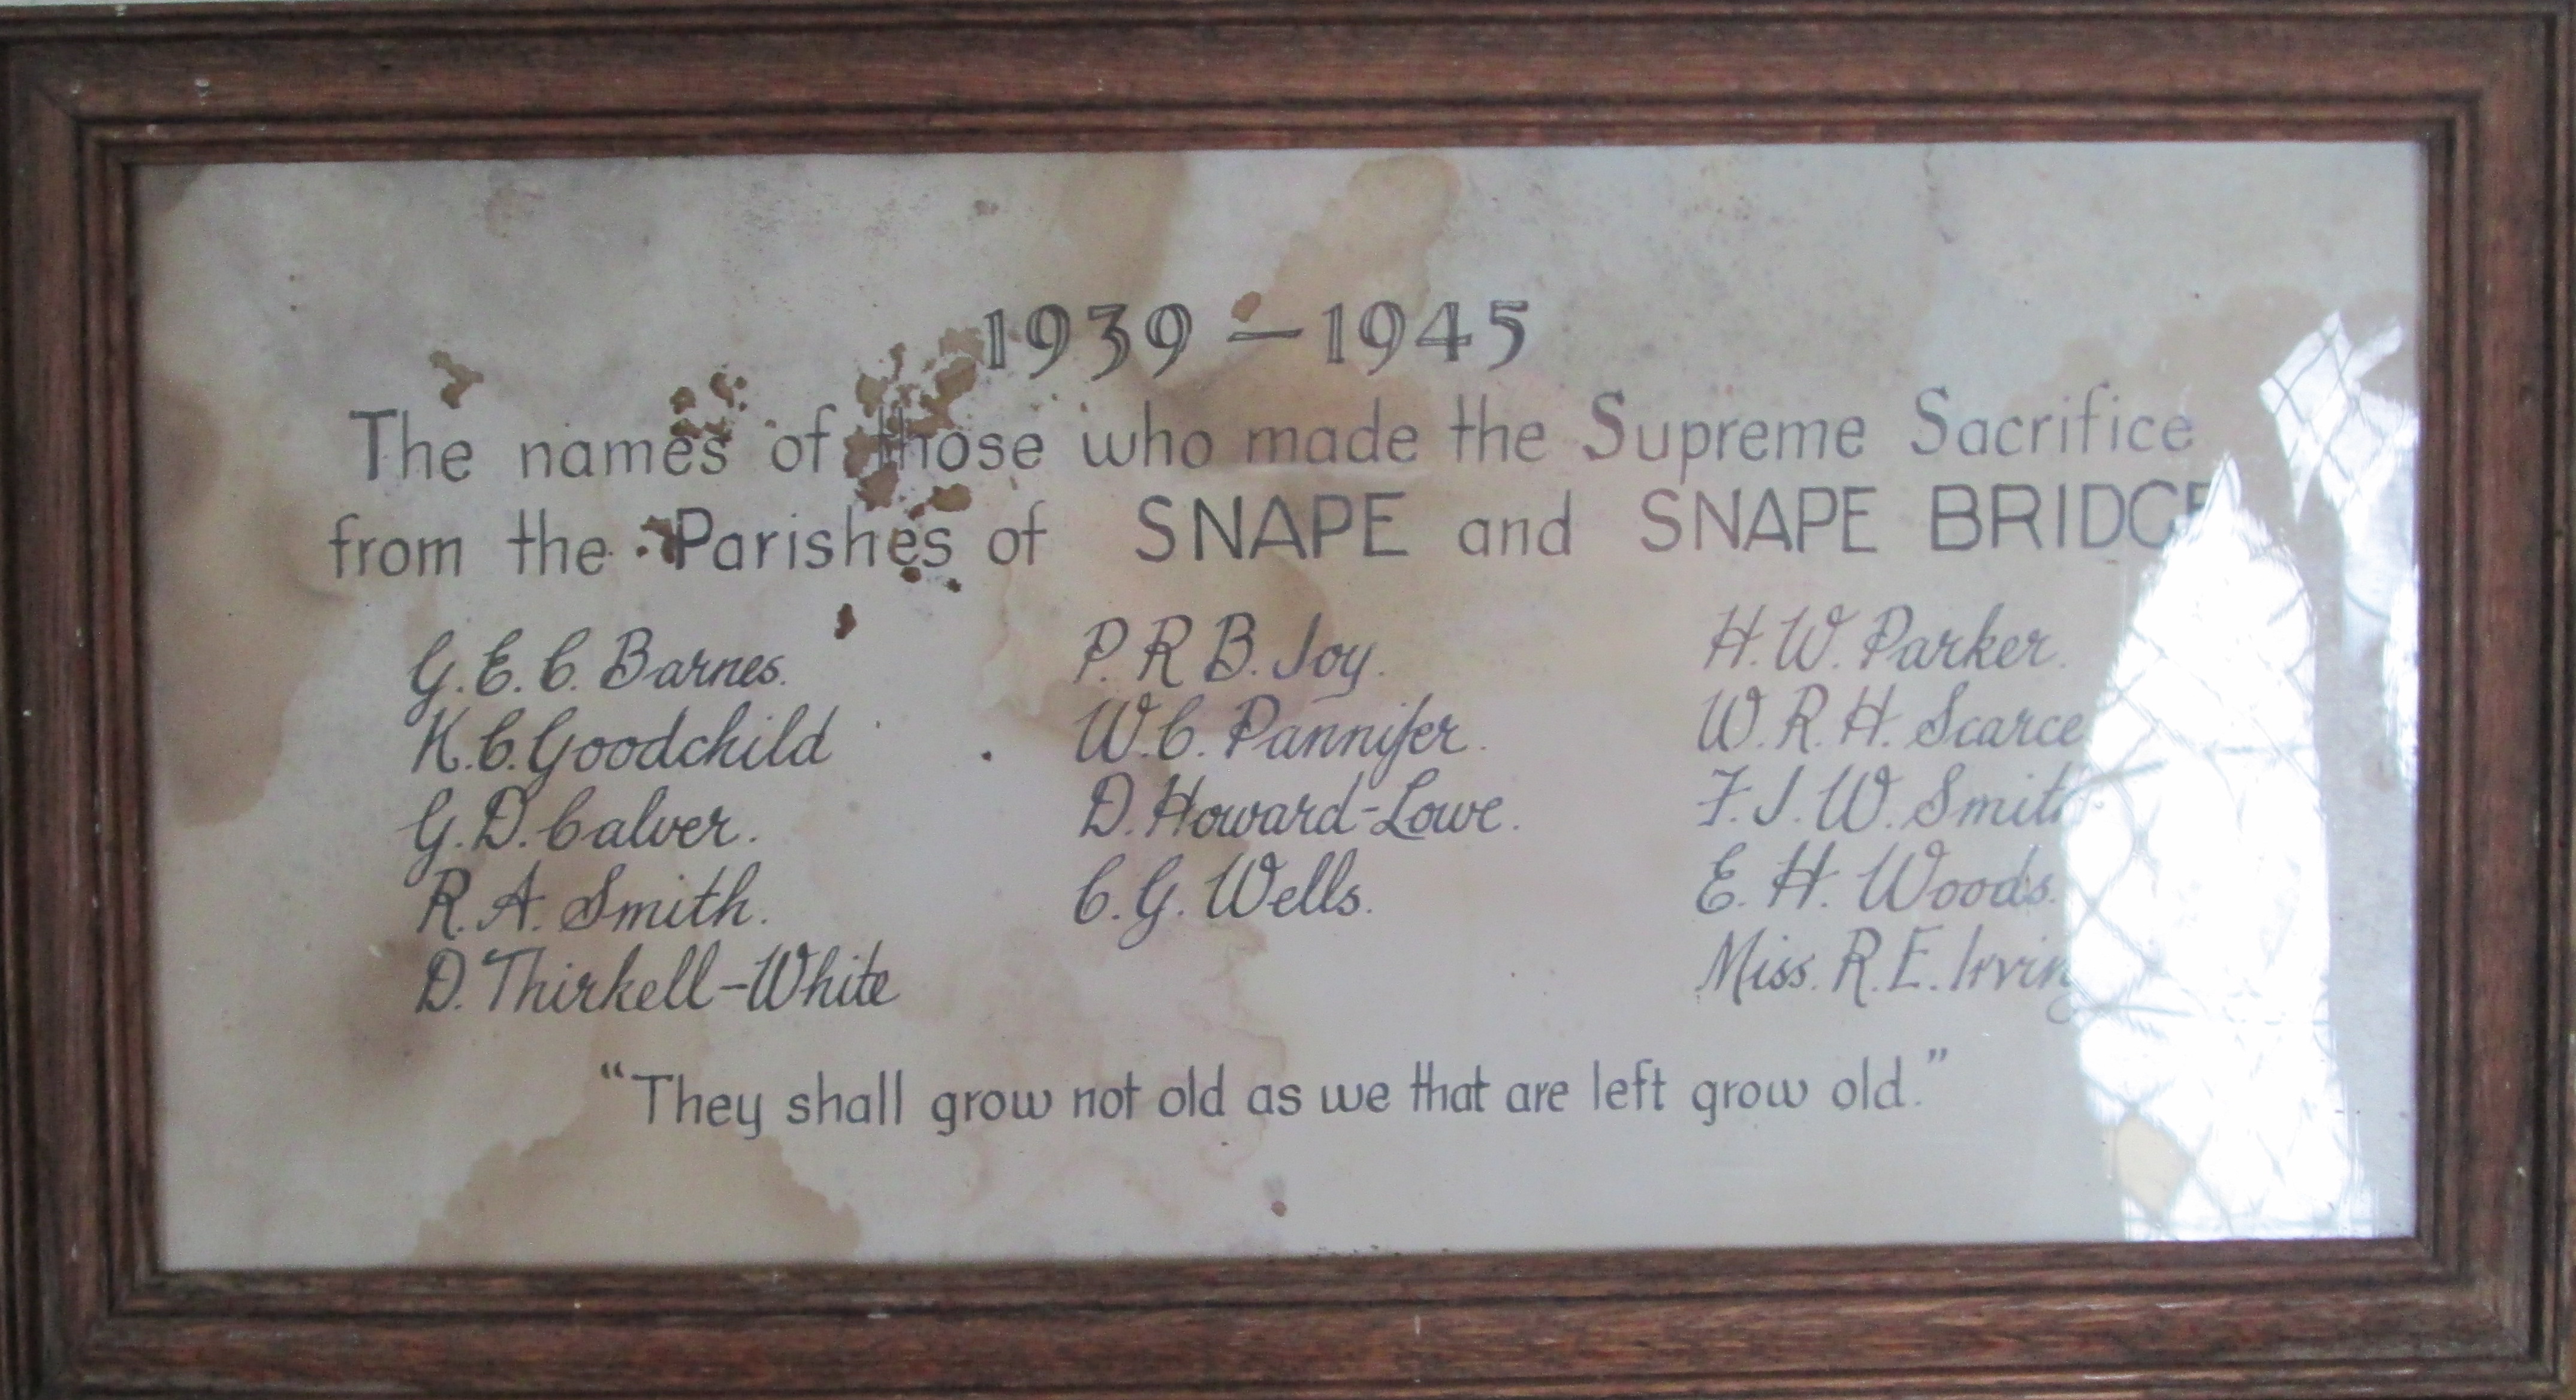 1939 — 1945
The names of those who made the Supreme Sacrifice
from the Parishes of SNAPE and SNAPE BRIDGE
G. E. C. Barnes.
K. C. Goodchild
G. D. Calver.
R. A. Smith.
D. Thirkell-White
P. R B. Joy.
W. C. Pannifer.
D. Howard-Lowe.
C. G. Wells.
H. W. Parker.
W. R. H. Scarce
F. J. W. Smith
E. H. Woods.
Miss. R. E. Irving
“They shall grow not old as we that are left grow old.”